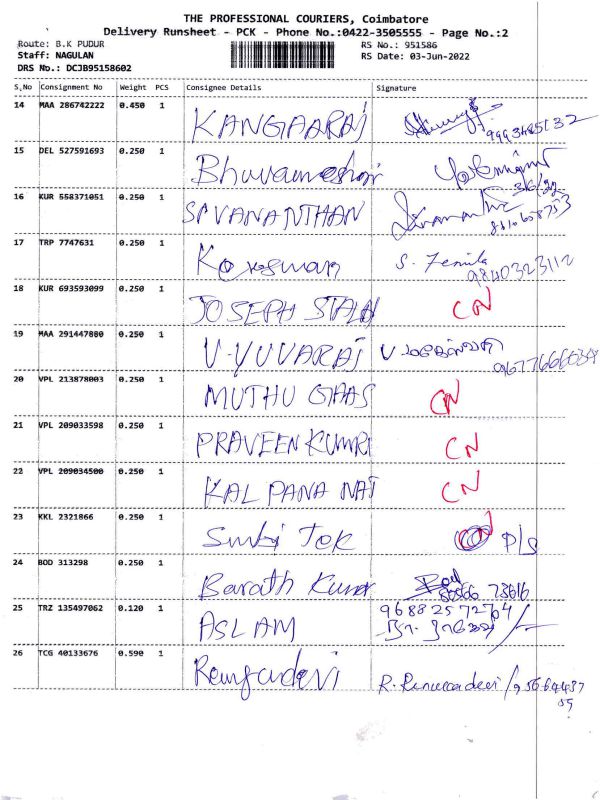 THE PROFESSIONAL COURIERS, Coimbatore
Delivery Runsheet - PCK - Phone No.:0422-3505555 - Page No.:2
Route: B.K PUDUR RS No.: 951586
Staff: NAGULAN RS Date: 03-Jun-2022
DRS No.: DCJB95158602
S.No Consignment No Weight PCS Consignee Details Signature
14 MAA 286742222 0.450 1 KANGAARAJ
15 DEL 527591693 0.250 1 Bhuvaneshari
3/6/22
16 KUR 558371051 0.250 1 SAVANANTHAN
8110658753
17 TRP 7747631 0.250 1 S. Femila
9840323112
18 KUR 693593099 0.250 1 JOSEPH STALAI CN
19 MAA 291447880 0.250 1 V-YUVARAJ
20 VPL 213878003 0.250 1 MUTHU GAAS CN
21 VPL 209033598 0.250 1 PRAVEEN KUMRI CN
22 VPL 209034500 0.250 1 KALPANA NAT CN
23 KKL 2321866 0.250 1 P/S
24 BOD 313298 0.250 1 Barath Kumar
25 TRZ 135497062 0.120 1 ASLAM 96882572764
26 TCG 40133676 0.590 1 R. Renuka devi